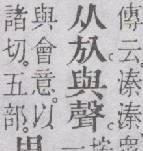 傳云溱溱衆
从㫃與聲
一
與會意以
諸切五部